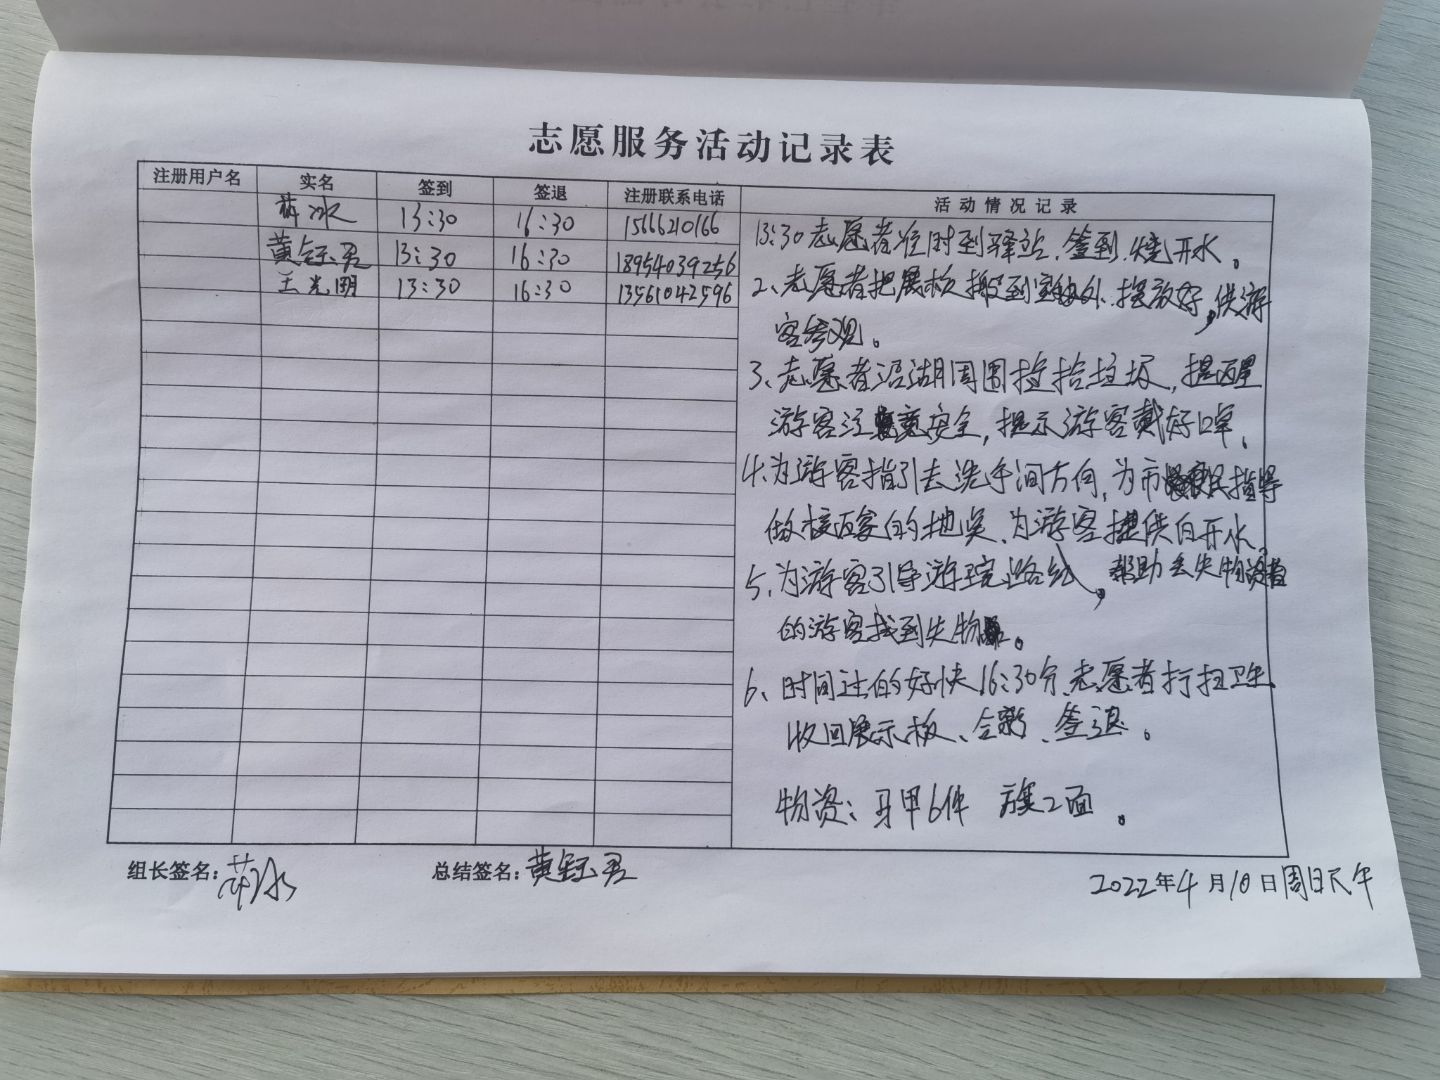 志愿服务活动记录表
注册用户名 实名 签到 签退 注册联系电话 活动情况记录
冰 13:30 16:30 15666210166
黄钰君 13:30 16:30 18954039256
王光明 13:30 16:30 13561042596
13:30志愿者准时到驿站、签到、烧开水。
2、志愿者把展板搬到室外、摆放好,供游
客参观。
3、志愿者沿湖周围捡拾垃圾,提醒
游客注意安全,提示游客戴好口罩、
4、为游客指引去洗手间方向,为市民指导
做核酸的地点、为游客提供白开水。
5、为游客引导游玩路线,帮助丢失物
的游客找到失物。
6、时间过的好快16:30分、志愿者打扫卫生、
收回展示板、合影、签退。
物资:马甲6件 旗2面。
组长签名: 冰 总结签名:黄钰君 2022年4月10日周日下午